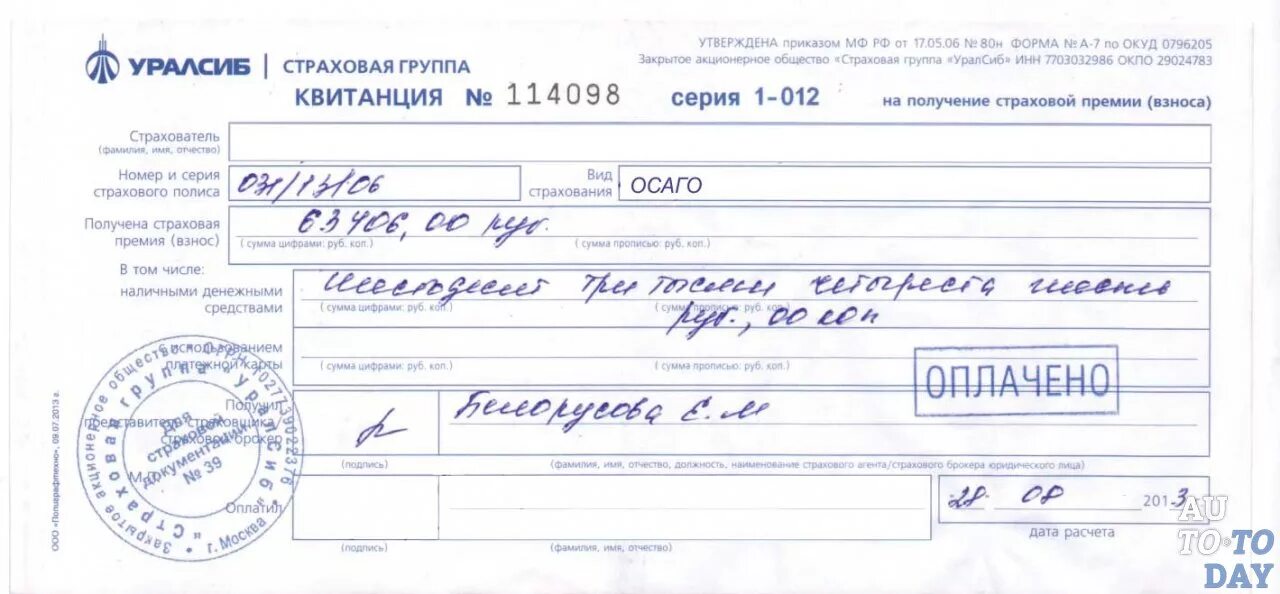 УРАЛСИБ | СТРАХОВАЯ ГРУППА
УТВЕРЖДЕНА приказом МФ РФ от 17.05.06 № 80н ФОРМА № А-7 по ОКУД 0796205
Закрытое акционерное общество «Страховая группа «УралСиб» ИНН 7703032986 ОКПО 29024783
КВИТАНЦИЯ № 114098 серия 1-012 на получение страховой премии (взноса)
Страхователь
(фамилия, имя, отчество)
Номер и серия
страхового полиса
Вид
страхования
ОСАГО
Получена страховая
премия (взнос)
63406,00 руб.
(сумма цифрами: руб. коп.) (сумма прописью: руб. коп.)
В том числе:
наличными денежными
средствами
Шестьдесят три тысячи четыреста шесть
руб., 00 коп
(сумма цифрами: руб. коп.) (сумма прописью: руб. коп.)
с использованием
платежной карты
(сумма цифрами: руб. коп.) (сумма прописью: руб. коп.)
ОПЛАЧЕНО
Получил
представитель страховщика/
страховой брокер
Белорусова Е.М
(подпись) (фамилия, имя, отчество, должность, наименование страхового агента/страхового брокера юридического лица)
М.П.
Оплатил
(подпись) (фамилия, имя, отчество)
28 08 2013
дата расчета
Закрытое акционерное общество • ОГРН 1027739022376
• г. Москва •
"Страховая группа "УралСиб"
Для
страховой
документации
№ 39
ООО «Полиграфтехно», 09.07.2013 г.
AU
TO TO
DAY